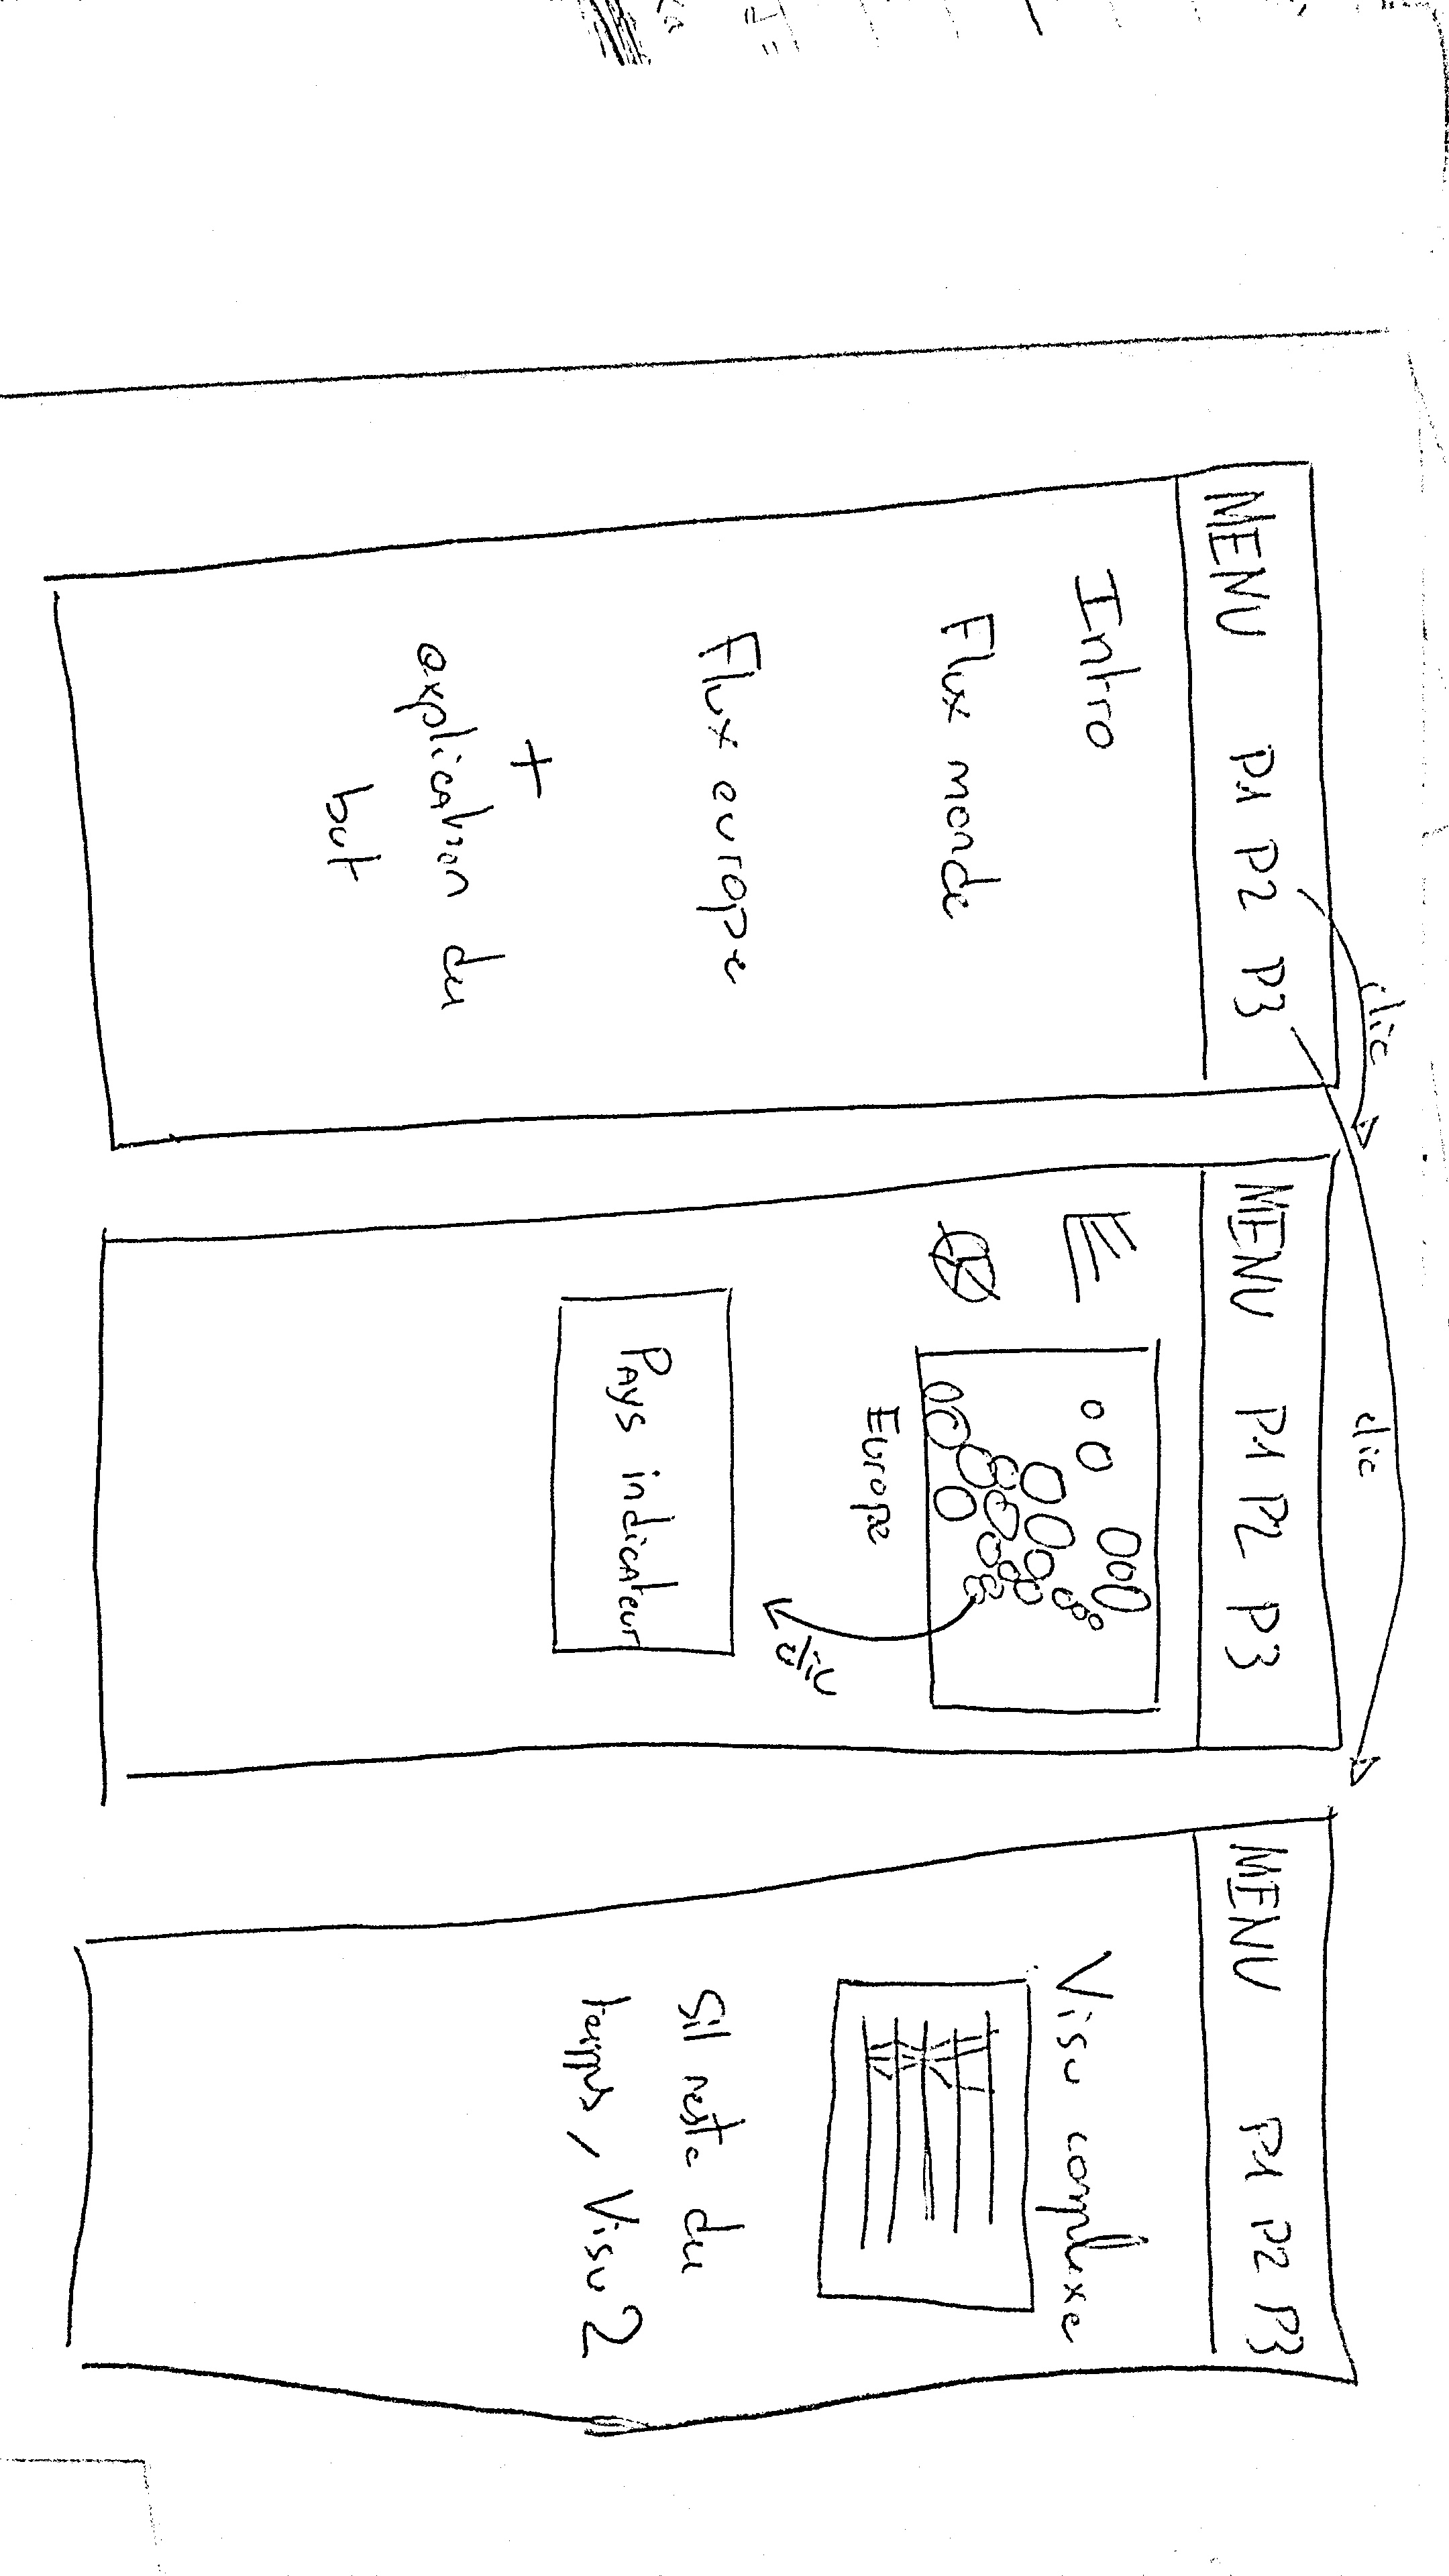 MENU P1 P2 P3
clic
Intro
Flux monde
Flux europe
+
explication du
but
clic
MENU P1 P2 P3
Europe
clic
Pays indicateur
MENU P1 P2 P3
Visu complexe
Sil reste du
temps, Visu 2